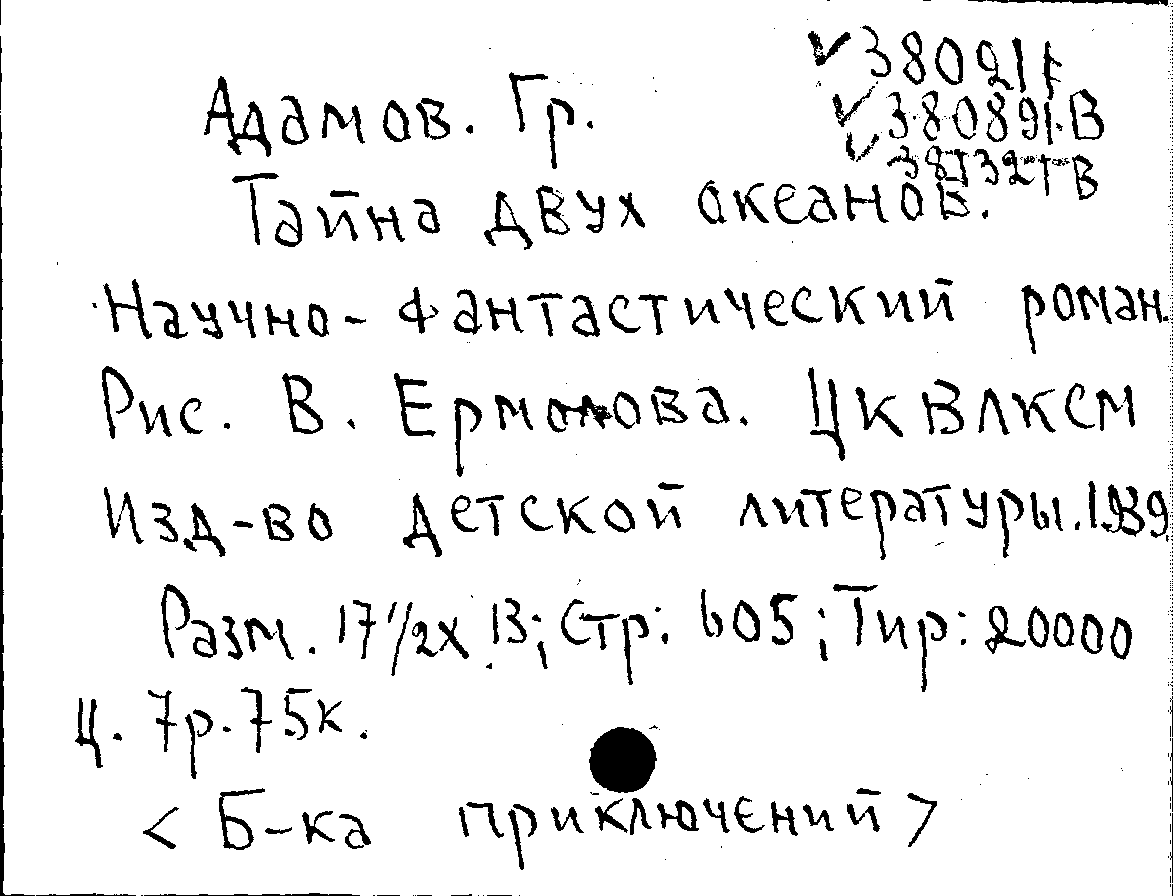 380211
Адамов. Гр.
380891.В
Тайна двух океанов.
Научно-фантастический роман.
Рис. В. Ермолова. ЦК ВЛКСМ
Изд-во детской литературы. 1939.
Разм. 17 1/2 х 13; Стр: 605; Тир: 20000
Ц. 7р. 75к.
< Б-ка приключений >